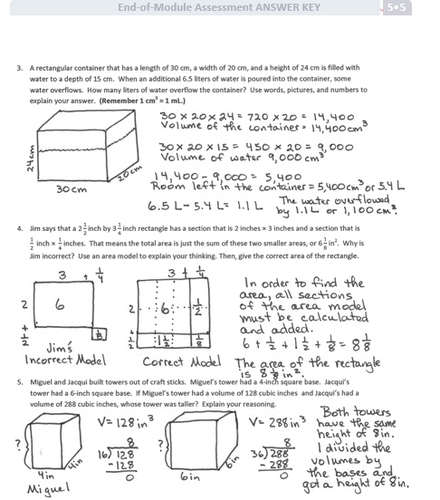 End-of-Module Assessment ANSWER KEY
5•5
3. A rectangular container that has a length of 30 cm, a width of 20 cm, and a height of 24 cm is filled with
water to a depth of 15 cm. When an additional 6.5 liters of water is poured into the container, some
water overflows. How many liters of water overflow the container? Use words, pictures, and numbers to
explain your answer. (Remember 1 cm³ = 1 mL.)
30 × 20 × 24 = 720 × 20 = 14,400
Volume of the container = 14,400cm³
30 × 20 × 15 = 450 × 20 = 9,000
Volume of water 9,000 cm³
14,400 - 9,000 = 5,400
Room left in the container = 5,400cm³ or 5.4 L
6.5 L - 5.4 L = 1.1 L
The water overflowed
by 1.1 L or 1,100 cm³.
24cm
30cm
20cm
4. Jim says that a 2 1/2 inch by 3 1/4 inch rectangle has a section that is 2 inches × 3 inches and a section that is
1/2 inch × 1/4 inches. That means the total area is just the sum of these two smaller areas, or 6 1/8 in². Why is
Jim incorrect? Use an area model to explain your thinking. Then, give the correct area of the rectangle.
3 + 1/4
2
+
1/2
6
1/8
Jim's
Incorrect Model
3 + 1/4
2
+
1/2
6
1/2
1 1/2
1/8
Correct Model
In order to find the
area, all sections
of the area model
must be calculated
and added.
6 + 1/2 + 1 1/2 + 1/8 = 8 1/8
The area of the rectangle
is 8 1/8 in².
5. Miguel and Jacqui built towers out of craft sticks. Miguel's tower had a 4-inch square base. Jacqui's
tower had a 6-inch square base. If Miguel's tower had a volume of 128 cubic inches and Jacqui's had a
volume of 288 cubic inches, whose tower was taller? Explain your reasoning.
?
4in
4in
Miguel
V = 128in³
8
16)128
-128
0
?
6in
6in
V = 288in³
8
36)288
-288
0
Both towers
have the same
height of 8in.
I divided the
volumes by
the bases and
got a height of 8in.